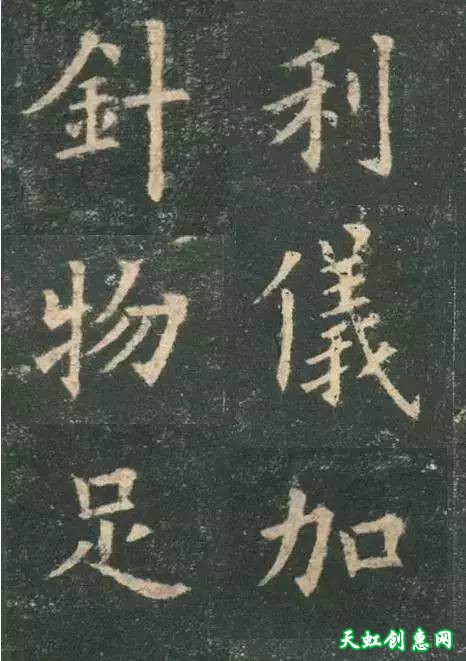 利儀加
針物足
天虹创惠网